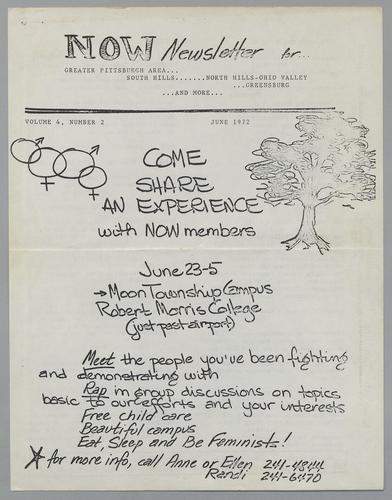 NOW Newsletter for...
GREATER PITTSBURGH AREA...
SOUTH HILLS.......NORTH HILLS-OHIO VALLEY
...GREENSBURG
...AND MORE...
VOLUME 4, NUMBER 2 JUNE 1972
COME
SHARE
AN EXPERIENCE
with NOW members
June 23-5
→Moon Township Campus
Robert Morris College
(just past airport)
Meet the people you've been fighting
and demonstrating with
Rap in group discussions on topics
basic to our efforts and your interests
Free child care
Beautiful campus
Eat, Sleep and Be Feminists!
for more info, call Anne or Ellen 241-4844
Randi 241-6470